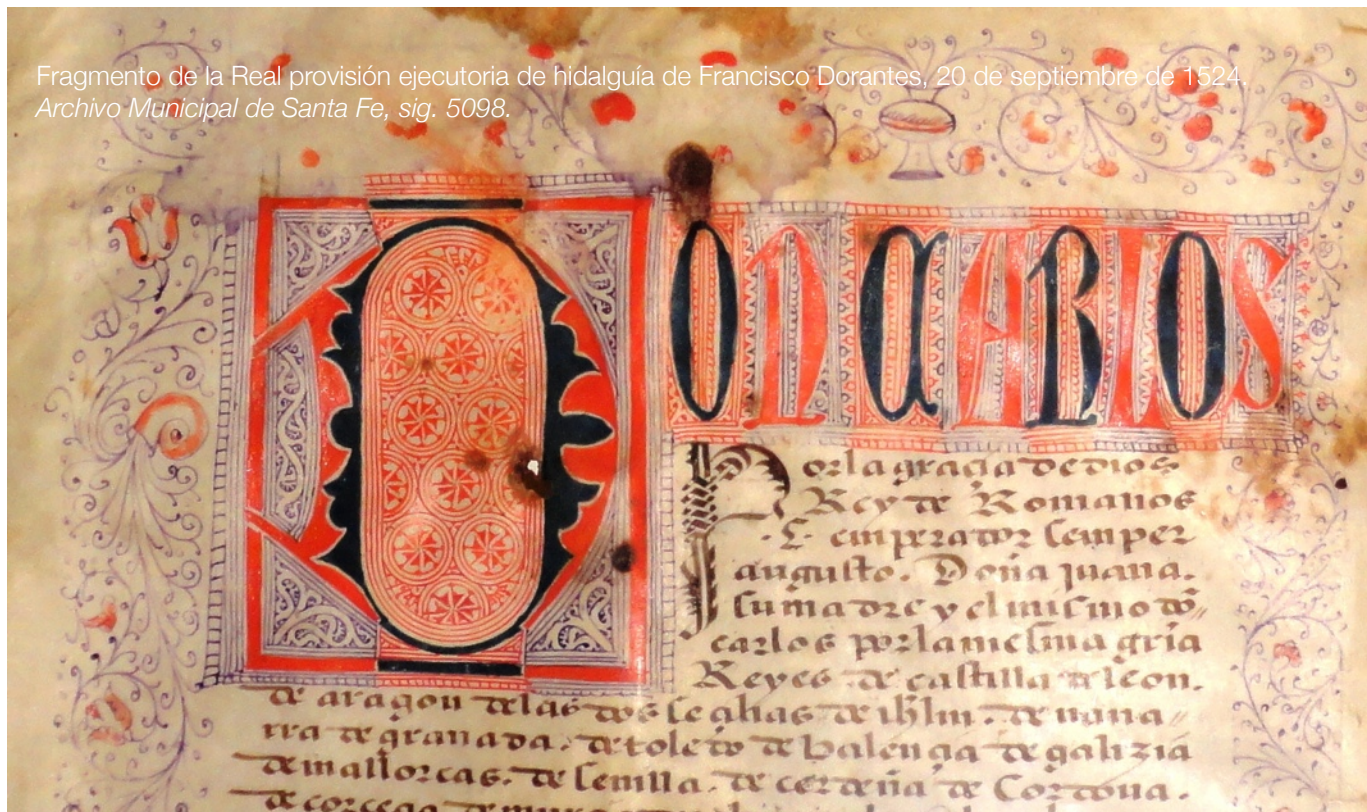 Fragmento de la Real provisión ejecutoria de hidalguía de Francisco Dorantes, 20 de septiembre de 1524.
Archivo Municipal de Santa Fe, sig. 5098.
DON CARLOS
Por la graçia de dios
Rey de Romanos
E emperador semper
augusto. Doña juana.
su madre y el mismo dõ
carlos por la mesma gr̃ia
Reyes de castilla de leon.
de aragon de las dos seçilias de ihľm. de naua
rra de granada. de toledo de balençia de galizia
de mallorcas. de seuilla. de cerdeña de Cordoua.
de corcega de